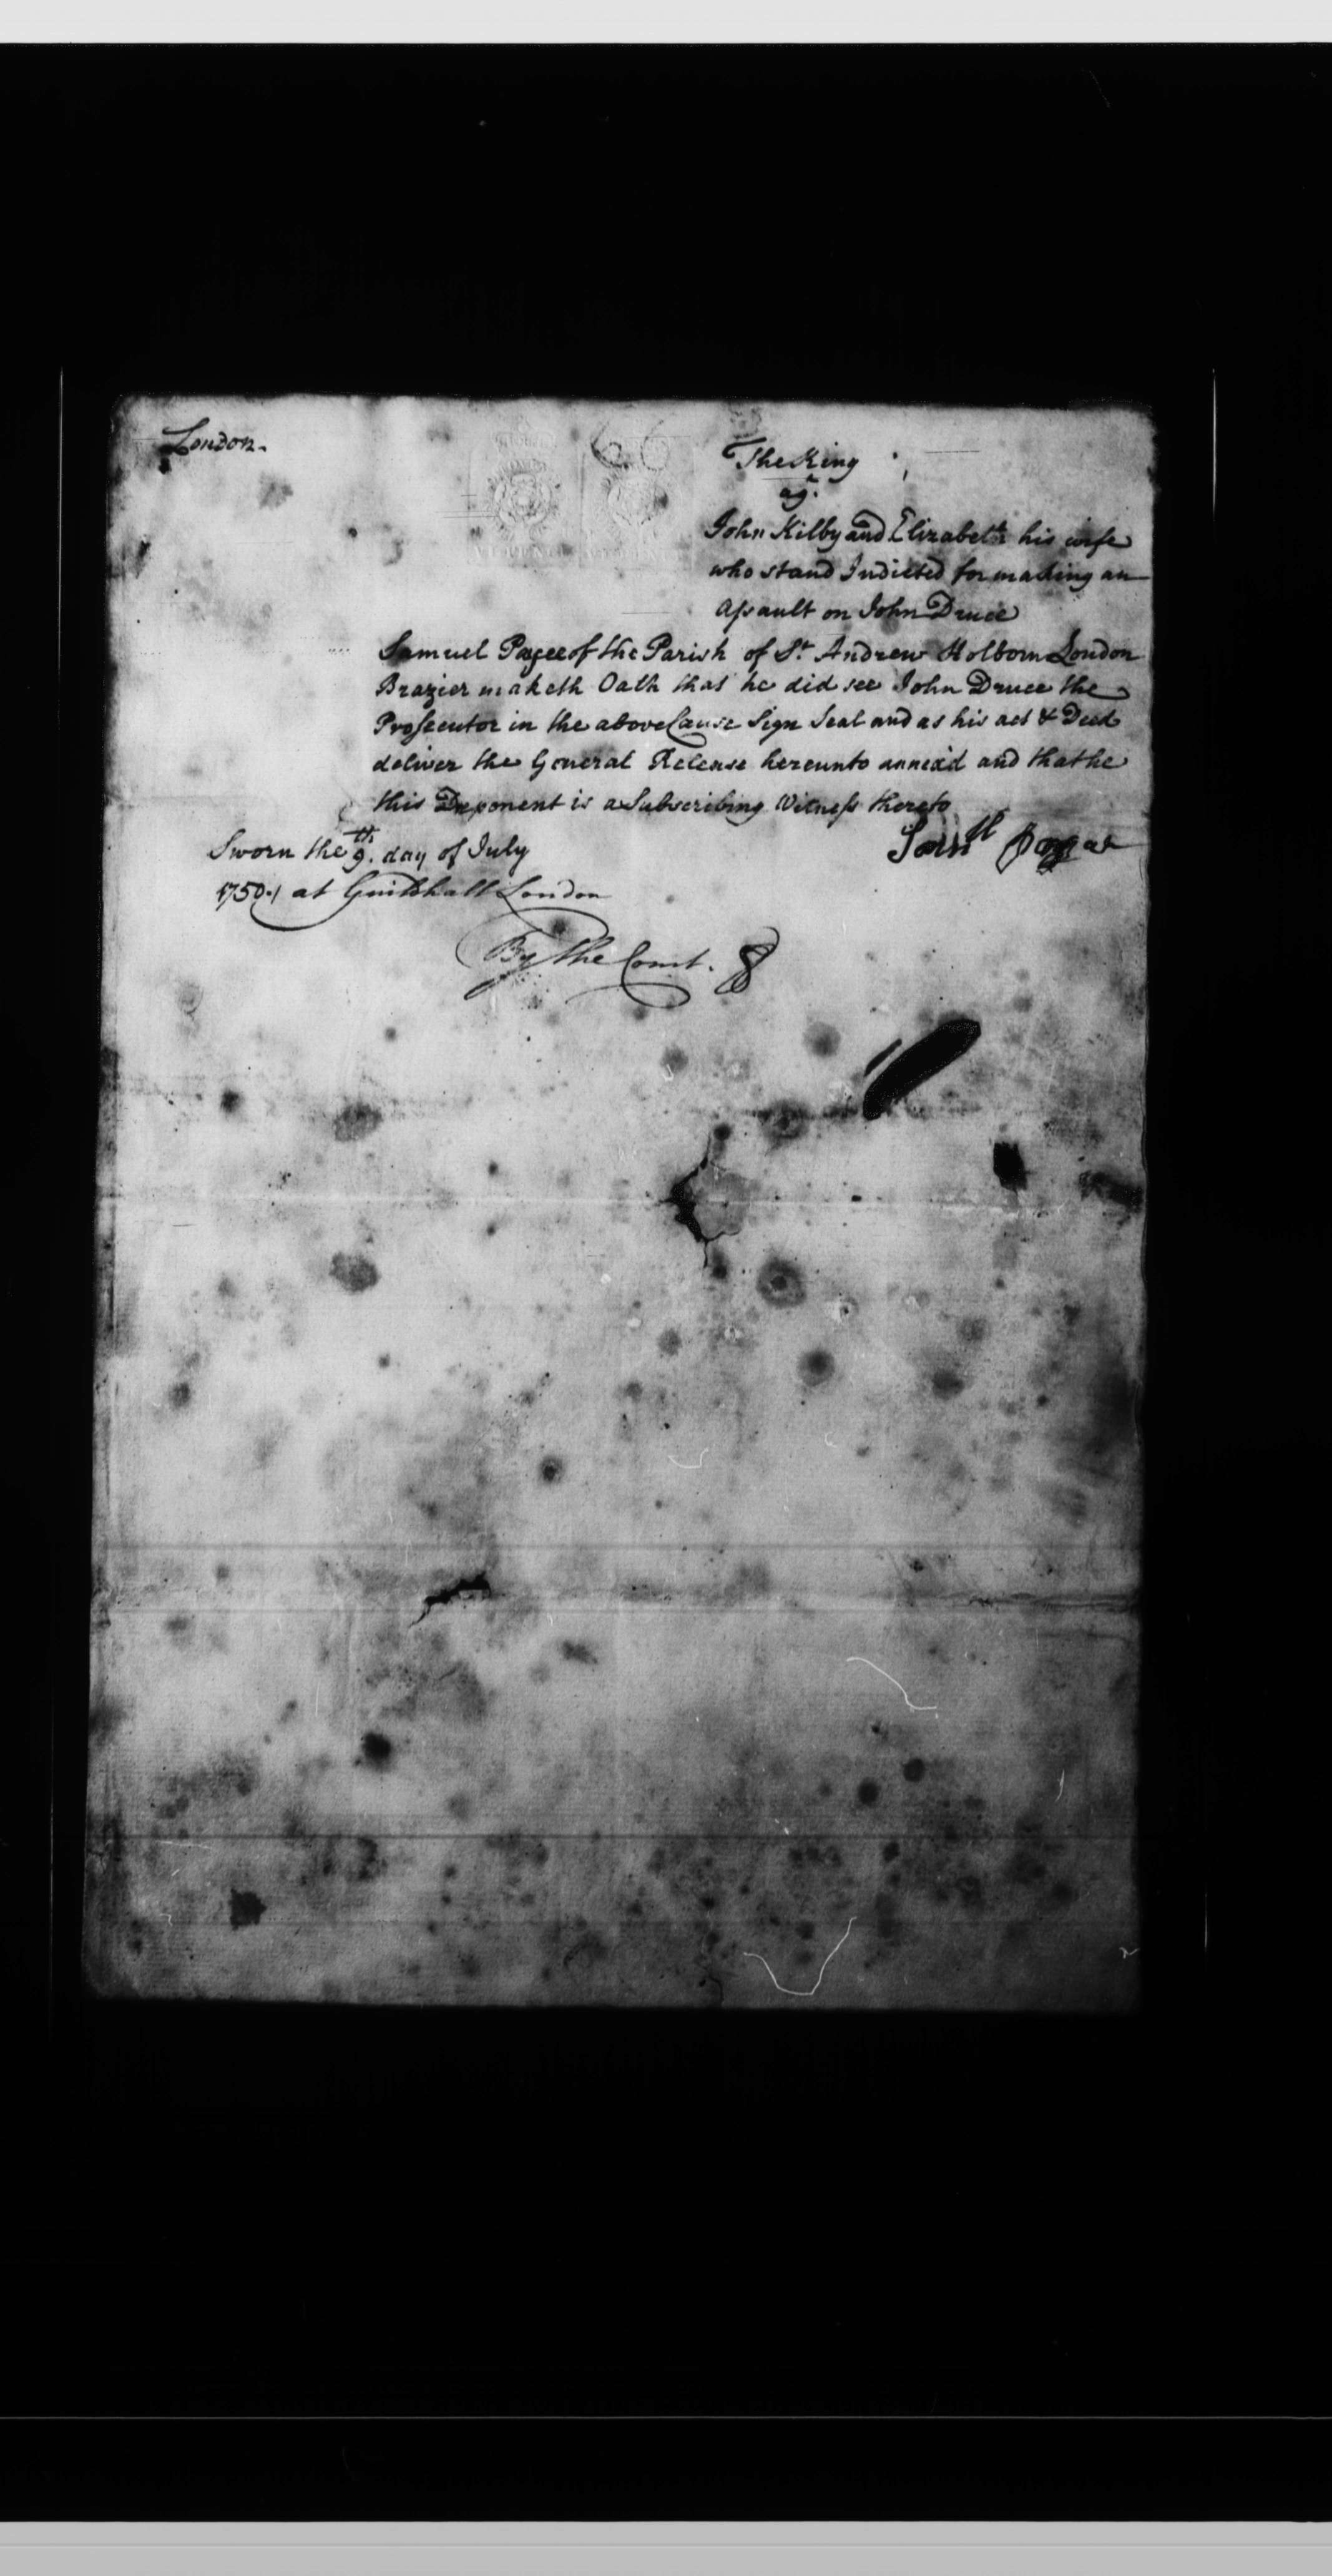 London.
66
The King
agt.
John Kilby and Elizabeth his wife
who stand Indicted for making an
Assault on John Druce
Samuel Pagee of the Parish of St. Andrew Holborn London
Brazier maketh Oath that he did see John Druce the
Prosecutor in the above Cause Sign Seal and as his act & Deed
deliver the General Release hereunto annex'd and that he
this Deponent is a Subscribing Witness thereto
Sworn the 9th. day of July
1750. at Guildhall London
Samll
By the Court.